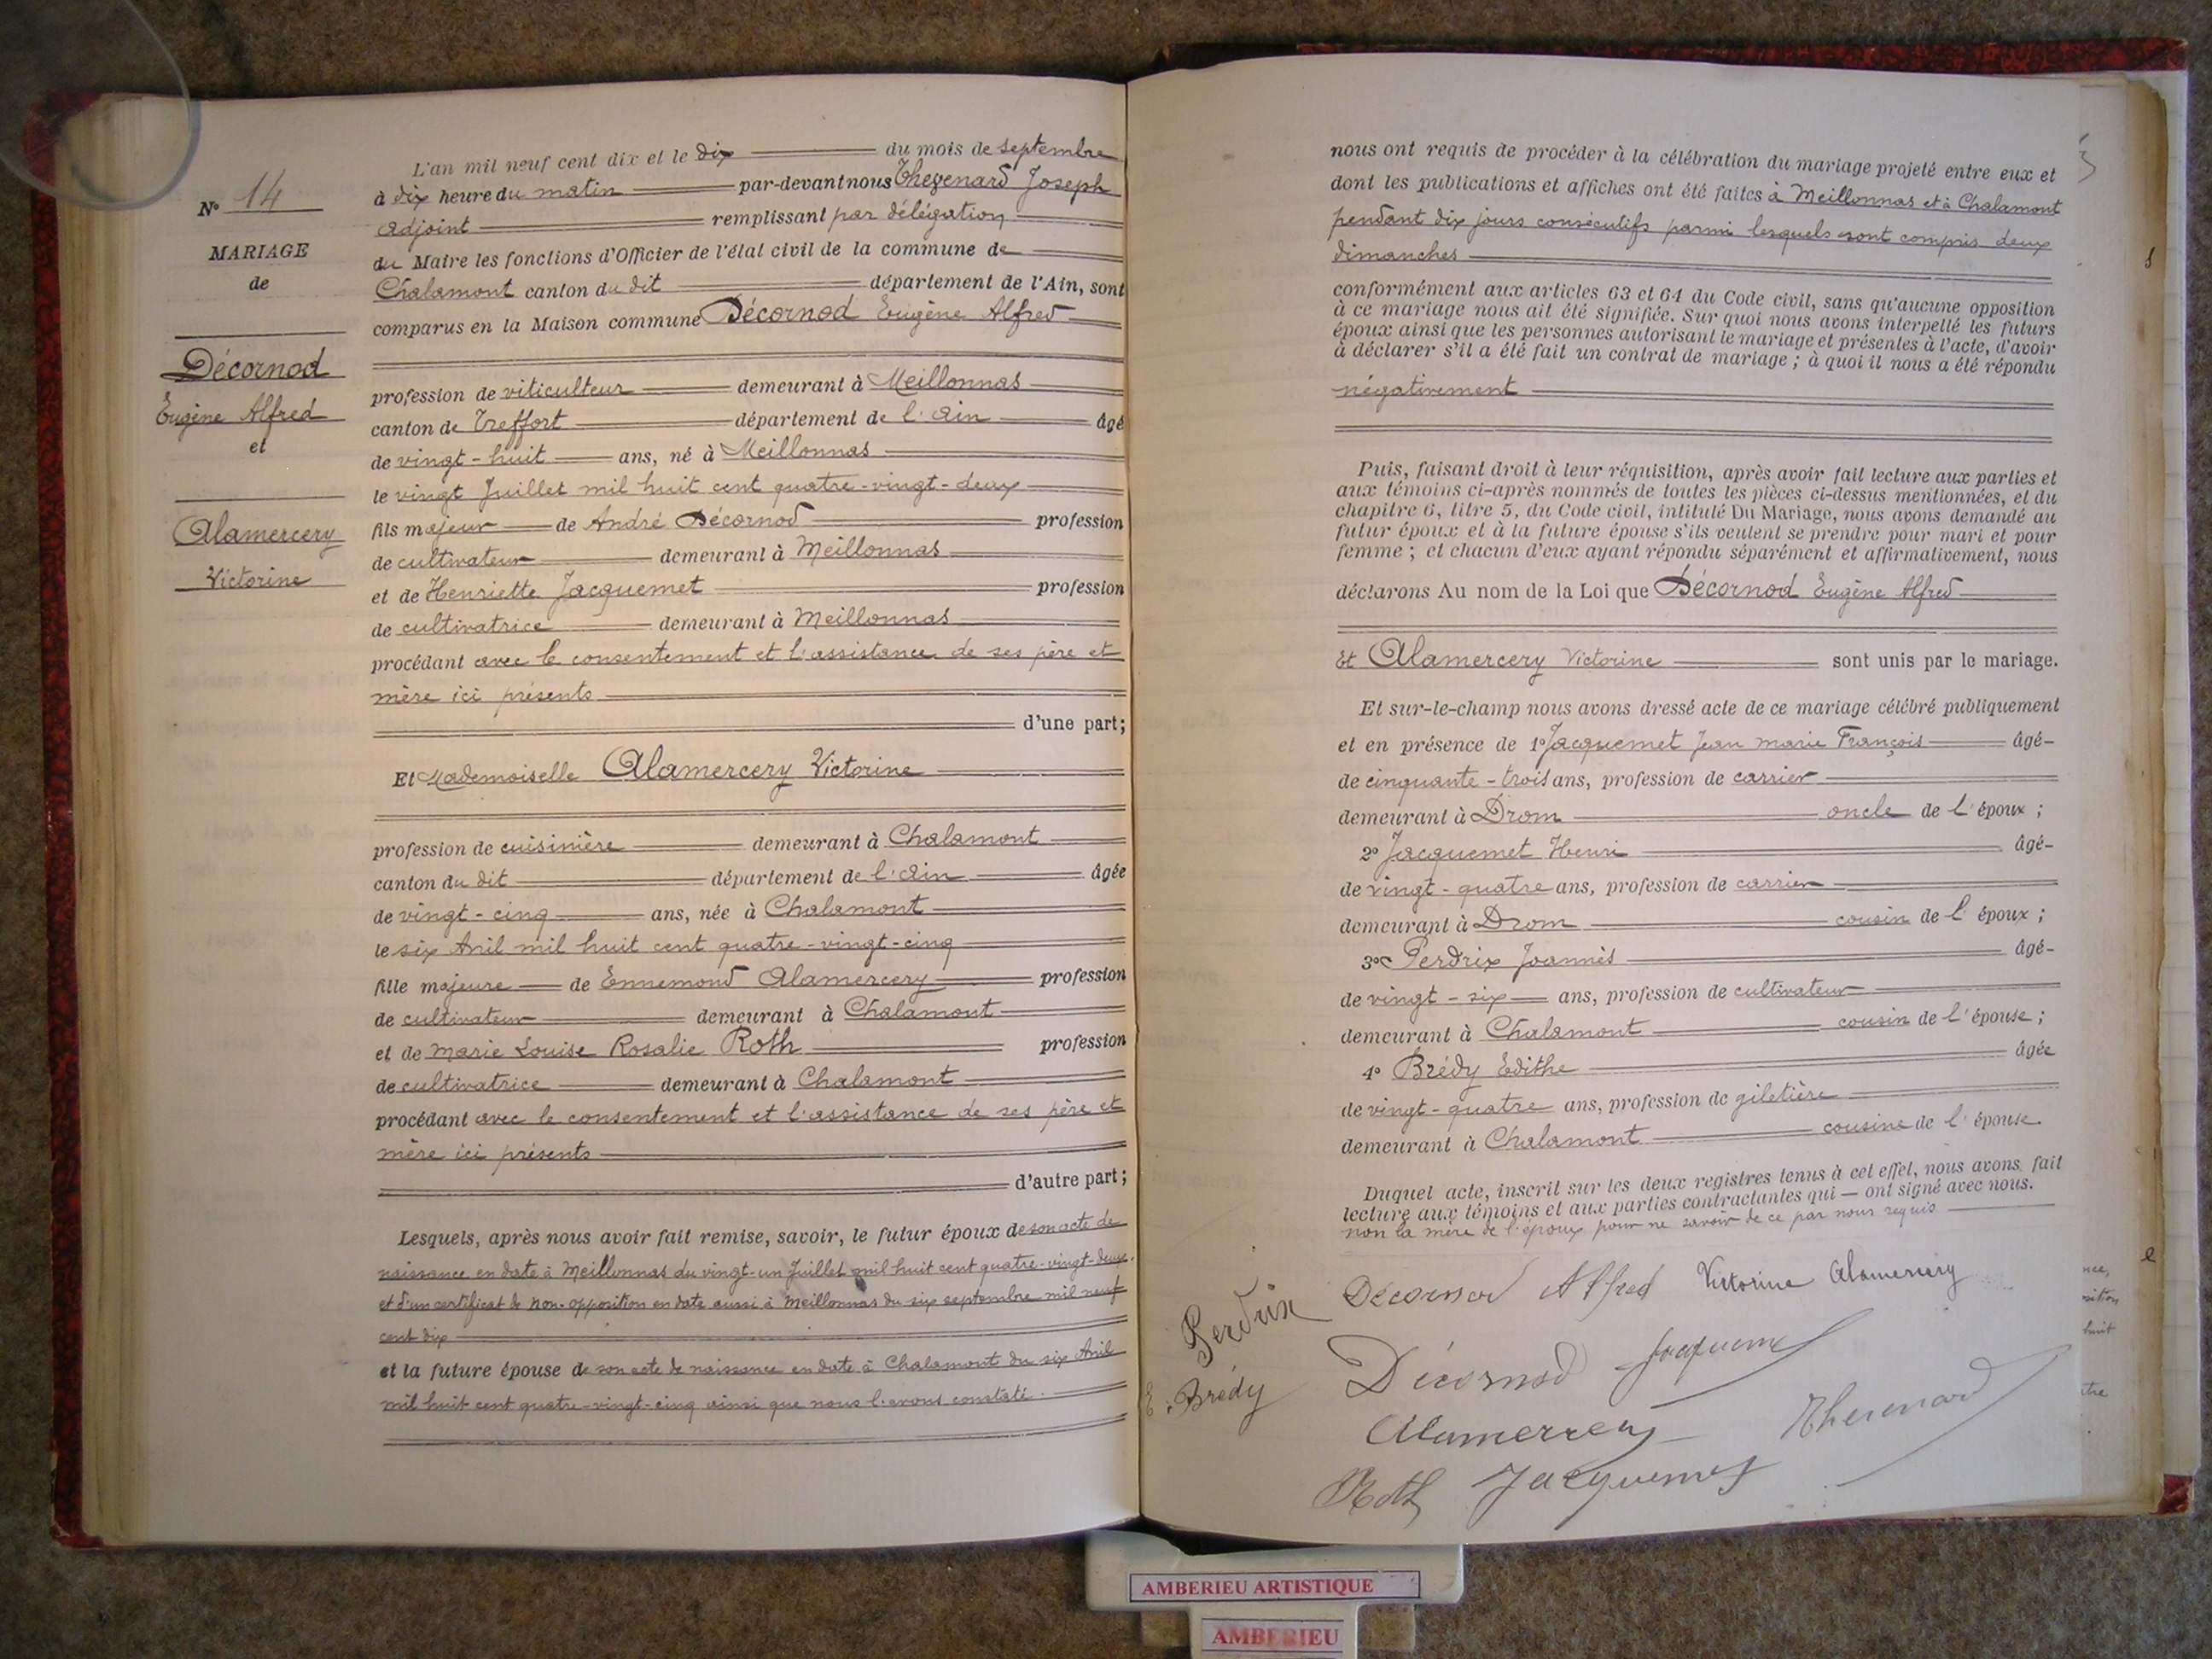 L'an mil neuf cent dix et le dix du mois de septembre
N° 14
à dix heure du matin par-devant nous Thevenard Joseph
adjoint remplissant par délégation
MARIAGE
du Maire les fonctions d'Officier de l'état civil de la commune de
de
Chalamont canton du dit département de l'Ain, sont
comparus en la Maison commune Décornod Eugène Alfred
Décornod
Eugène Alfred
et
Alamercery
Victorine
profession de viticulteur demeurant à Meillonnas
canton de Treffort département de l'Ain âgé
de vingt-huit ans, né à Meillonnas
le vingt Juillet mil huit cent quatre-vingt-deux
fils majeur de André Décornod profession
de cultivateur demeurant à Meillonnas
et de Henriette Jacquemet profession
de cultivatrice demeurant à Meillonnas
procédant avec le consentement et l'assistance de ses père et
mère ici présents
d'une part;
Et Mademoiselle Alamercery Victorine
profession de cuisinière demeurant à Chalamont
canton du dit département de l'Ain âgée
de vingt-cinq ans, née à Chalamont
le six Avril mil huit cent quatre-vingt-cinq
fille majeure de Ennemond Alamercery profession
de cultivateur demeurant à Chalamont
et de Marie Louise Rosalie Roth profession
de cultivatrice demeurant à Chalamont
procédant avec le consentement et l'assistance de ses père et
mère ici présents
d'autre part;
Lesquels, après nous avoir fait remise, savoir, le futur époux de son acte de
naissance en date à Meillonnas du vingt-un Juillet mil huit cent quatre-vingt-deux
et d'un certificat de non-opposition en date aussi à Meillonnas du six septembre mil neuf
cent dix
et la future épouse de son acte de naissance en date à Chalamont du six Avril
mil huit cent quatre-vingt-cinq ainsi que nous l'avons constaté.
nous ont requis de procéder à la célébration du mariage projeté entre eux et
dont les publications et affiches ont été faites à Meillonnas et à Chalamont
pendant dix jours consécutifs parmi lesquels sont compris deux
dimanches
conformément aux articles 63 et 64 du Code civil, sans qu'aucune opposition
à ce mariage nous ait été signifiée. Sur quoi nous avons interpellé les futurs
époux ainsi que les personnes autorisant le mariage et présentes à l'acte, d'avoir
à déclarer s'il a été fait un contrat de mariage ; à quoi il nous a été répondu
négativement
Puis, faisant droit à leur réquisition, après avoir fait lecture aux parties et
aux témoins ci-après nommés de toutes les pièces ci-dessus mentionnées, et du
chapitre 6, titre 5, du Code civil, intitulé Du Mariage, nous avons demandé au
futur époux et à la future épouse s'ils veulent se prendre pour mari et pour
femme ; et chacun d'eux ayant répondu séparément et affirmativement, nous
déclarons Au nom de la Loi que Décornod Eugène Alfred
Et Alamercery Victorine sont unis par le mariage.
Et sur-le-champ nous avons dressé acte de ce mariage célébré publiquement
et en présence de 1° Jacquemet Jean Marie François âgé
de cinquante-trois ans, profession de carrier
demeurant à Drom oncle de l'époux ;
2° Jacquemet Henri âgé
de vingt-quatre ans, profession de carrier
demeurant à Drom cousin de l'époux ;
3° Perdrix Joannès âgé
de vingt-six ans, profession de cultivateur
demeurant à Chalamont cousin de l'épouse ;
4° Brédy Edithe âgée
de vingt-quatre ans, profession de giletière
demeurant à Chalamont cousine de l'épouse.
Duquel acte, inscrit sur les deux registres tenus à cet effet, nous avons fait
lecture aux témoins et aux parties contractantes qui — ont signé avec nous.
non la mère de l'époux pour ne savoir de ce par nous requis
Décornod Alfred Victorine Alamercery
Perdrix
Décornod Jacquemet
E. Brédy
Alamercery Thevenard
Roth Jacquemet
AMBERIEU ARTISTIQUE
AMBERIEU